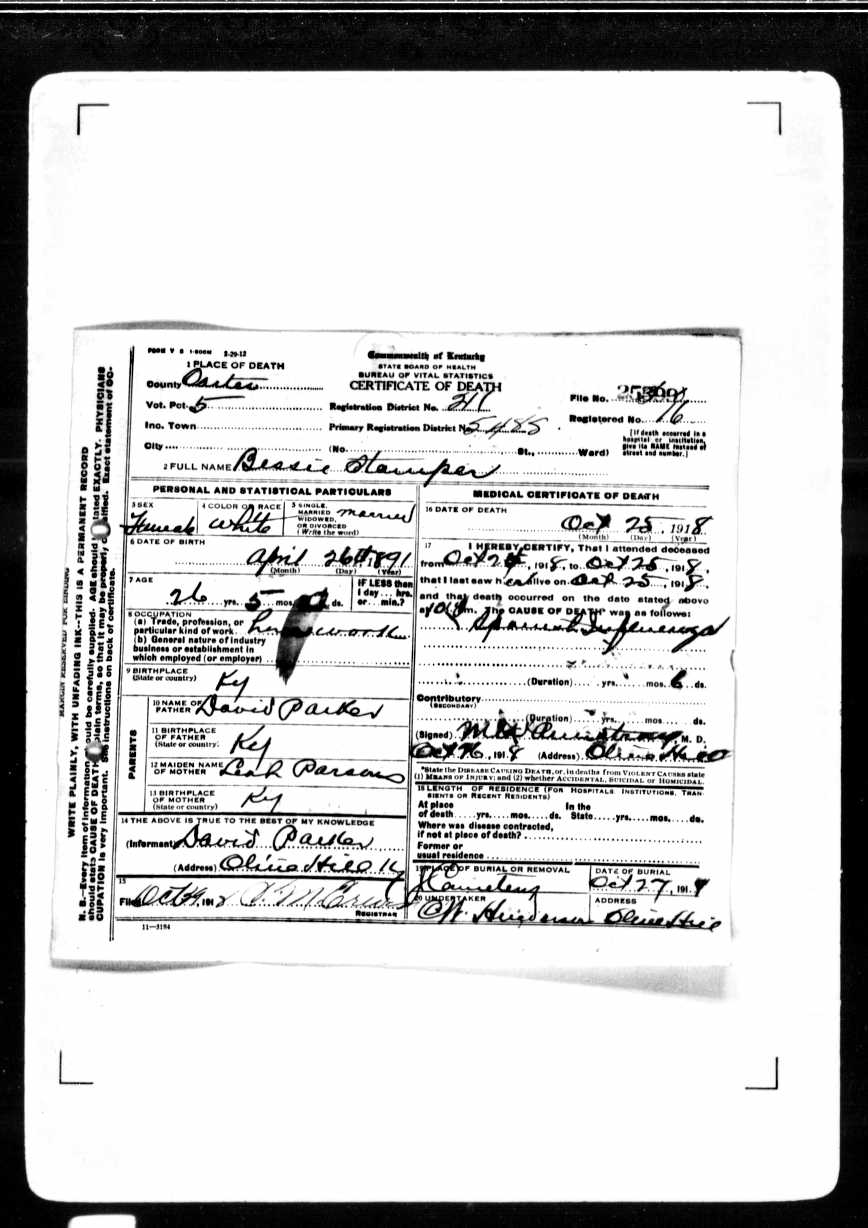 FORM V S 1-500M 2-29-12
1 PLACE OF DEATH
County Carter
Vot. Pct. 5
Inc. Town
City
Commonwealth of Kentucky
STATE BOARD OF HEALTH
BUREAU OF VITAL STATISTICS
CERTIFICATE OF DEATH
Registration District No. 211
Primary Registration District No. 5485
(No. St., Ward)
File No.
Registered No.
[If death occurred in a
hospital or institution,
give its NAME instead of
street and number.]
2 FULL NAME Bessie Stamper
PERSONAL AND STATISTICAL PARTICULARS
3 SEX
Female
4 COLOR OR RACE
White
5 SINGLE,
MARRIED
WIDOWED,
OR DIVORCED
(Write the word)
married
6 DATE OF BIRTH
April 26th 1891
(Month) (Day) (Year)
7 AGE
26 yrs. 5 mos. ds.
IF LESS than
1 day ... hrs.
or ... min.?
8 OCCUPATION
(a) Trade, profession, or
particular kind of work
(b) General nature of industry
business or establishment in
which employed (or employer)
9 BIRTHPLACE
(State or country)
Ky
PARENTS
10 NAME OF
FATHER David Parker
11 BIRTHPLACE
OF FATHER
(State or country)
Ky
12 MAIDEN NAME
OF MOTHER Leah Parsons
13 BIRTHPLACE
OF MOTHER
(State or country)
Ky
14 THE ABOVE IS TRUE TO THE BEST OF MY KNOWLEDGE
(Informant) David Parker
(Address) Olive Hill Ky
15
Filed Oct 191
REGISTRAR
11—3184
MEDICAL CERTIFICATE OF DEATH
16 DATE OF DEATH
Oct 25, 1918
(Month) (Day) (Year)
17 I HEREBY CERTIFY, That I attended deceased
from Oct , 1918, to Oct 25, 1918,
that I last saw her alive on Oct 25, 1918,
and that death occurred on the date stated above
at m. The CAUSE OF DEATH* was as follows:
Spanish Influenza
(Duration) yrs. mos. 6 ds.
Contributory
(SECONDARY)
(Duration) yrs. mos. ds.
(Signed) Armstrong, M. D.
Oct 26, 1918 (Address) Olive Hill
*State the DISEASE CAUSING DEATH, or, in deaths from VIOLENT CAUSES state
(1) MEANS OF INJURY; and (2) whether ACCIDENTAL, SUICIDAL or HOMICIDAL.
18 LENGTH OF RESIDENCE (FOR HOSPITALS, INSTITUTIONS, TRAN-
SIENTS OR RECENT RESIDENTS)
At place In the
of death yrs. mos. ds. State yrs. mos. ds.
Where was disease contracted,
if not at place of death?
Former or
usual residence
19 PLACE OF BURIAL OR REMOVAL
DATE OF BURIAL
Oct 27, 191
20 UNDERTAKER
Henderson
ADDRESS
Olive Hill
MARGIN RESERVED FOR BINDING
WRITE PLAINLY, WITH UNFADING INK—THIS IS A PERMANENT RECORD
N. B.—Every item of information should be carefully supplied. AGE should be stated EXACTLY. PHYSICIANS
should state CAUSE OF DEATH in plain terms, so that it may be properly classified. Exact statement of OC-
CUPATION is very important. See instructions on back of certificate.